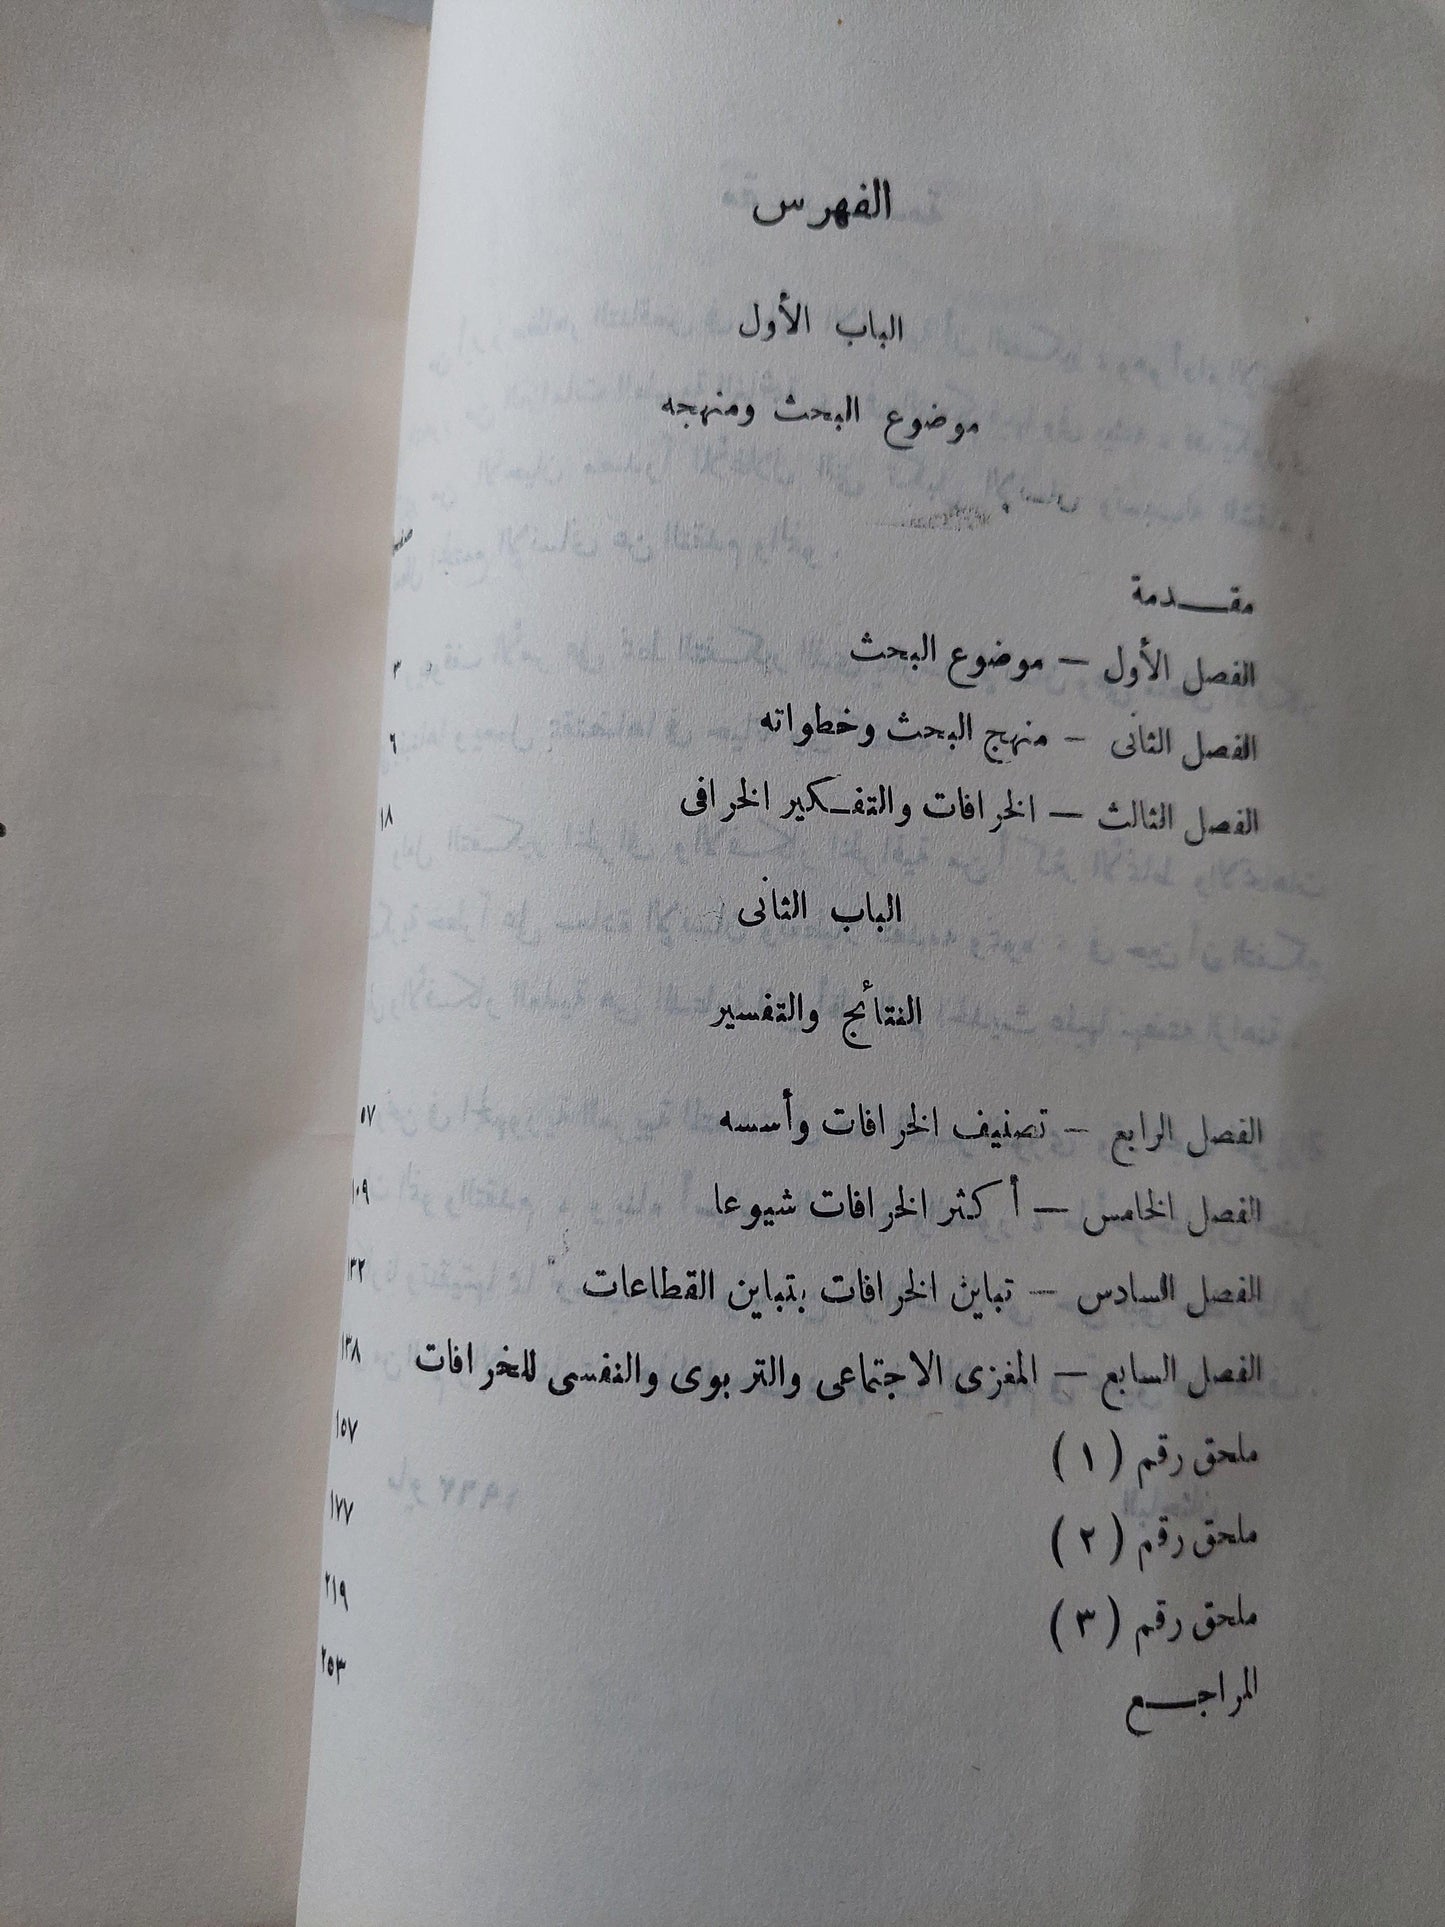 الفهرس
الباب الأول
موضوع البحث ومنهجه
صفحة
مقدمة
الفصل الأول — موضوع البحث ٣
الفصل الثانى — منهج البحث وخطواته ٦
الفصل الثالث — الخرافات والتفكير الخرافى ١٨
الباب الثانى
النتائج والتفسير
الفصل الرابع — تصنيف الخرافات وأسسه ٥٧
الفصل الخامس — أكثر الخرافات شيوعا ١٠٩
الفصل السادس — تباين الخرافات بتباين القطاعات ١٣٢
الفصل السابع — المغزى الاجتماعى والتربوى والنفسى للخرافات ١٣٨
ملحق رقم ( ١ ) ١٥٧
ملحق رقم ( ٢ ) ١٧٧
ملحق رقم ( ٣ ) ٢١٩
المراجع ٢٥٣